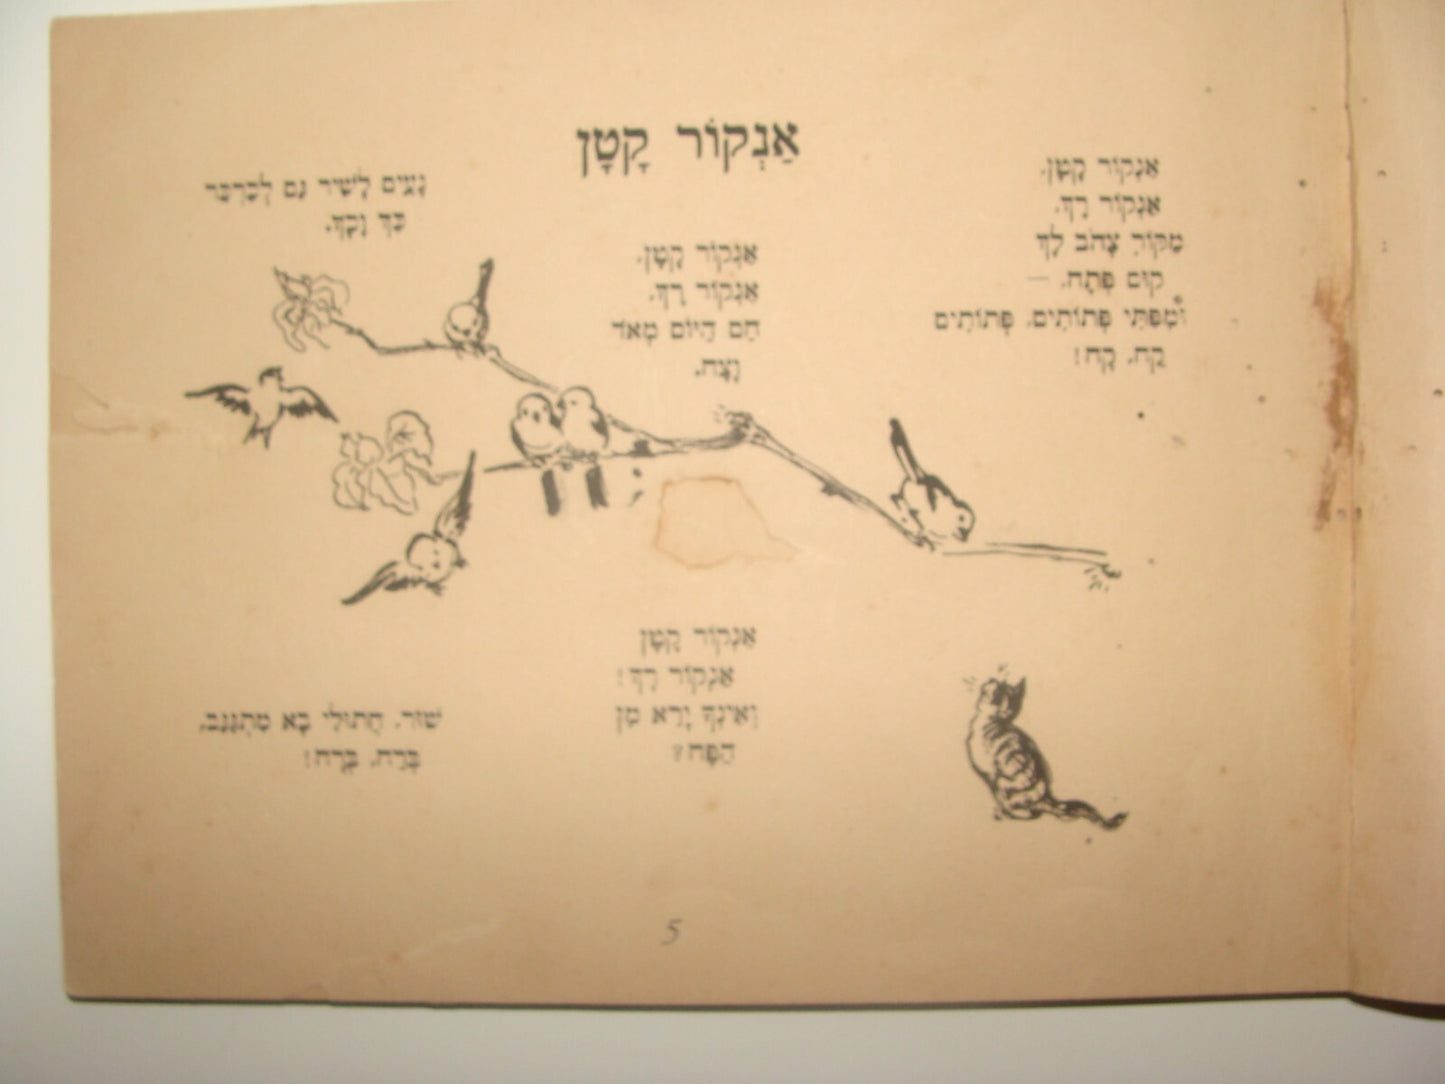 אַנְקוֹר קָטָן
אַנְקוֹר קָטָן,
אַנְקוֹר רַךְ,
מַקּוֹר צָהֹב לְךָ
קוּם פְּתַח, —
וּמִפִּתִּי פְּתוֹתִים, פְּתוֹתִים
קַח, קַח!
אַנְקוֹר קָטָן,
אַנְקוֹר רַךְ,
חַם הַיּוֹם מְאֹד
וָצַח.
נָעִים לָשִׁיר גַּם לְכַרְכֵּר
כָּךְ וָכָךְ.
אַנְקוֹר קָטָן
אַנְקוֹר רַךְ!
וְאֵינְךָ יָרֵא מִן
הַפַּח?
שׁוּר, חֲתוּלִי בָּא מִתְגַּנֵּב,
בְּרַח, בְּרַח!
5